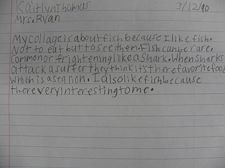 Kaitlyn Thomas 3/12/90
Mrs. Ryan
My collage is about fish because I like fish.
Not to eat but to see them. Fish can be rare,
common or frightening like a shark. When sharks
attack a surfer they think its there favorite food
which is a sea lion. I also like fish because
there very interesting to me.